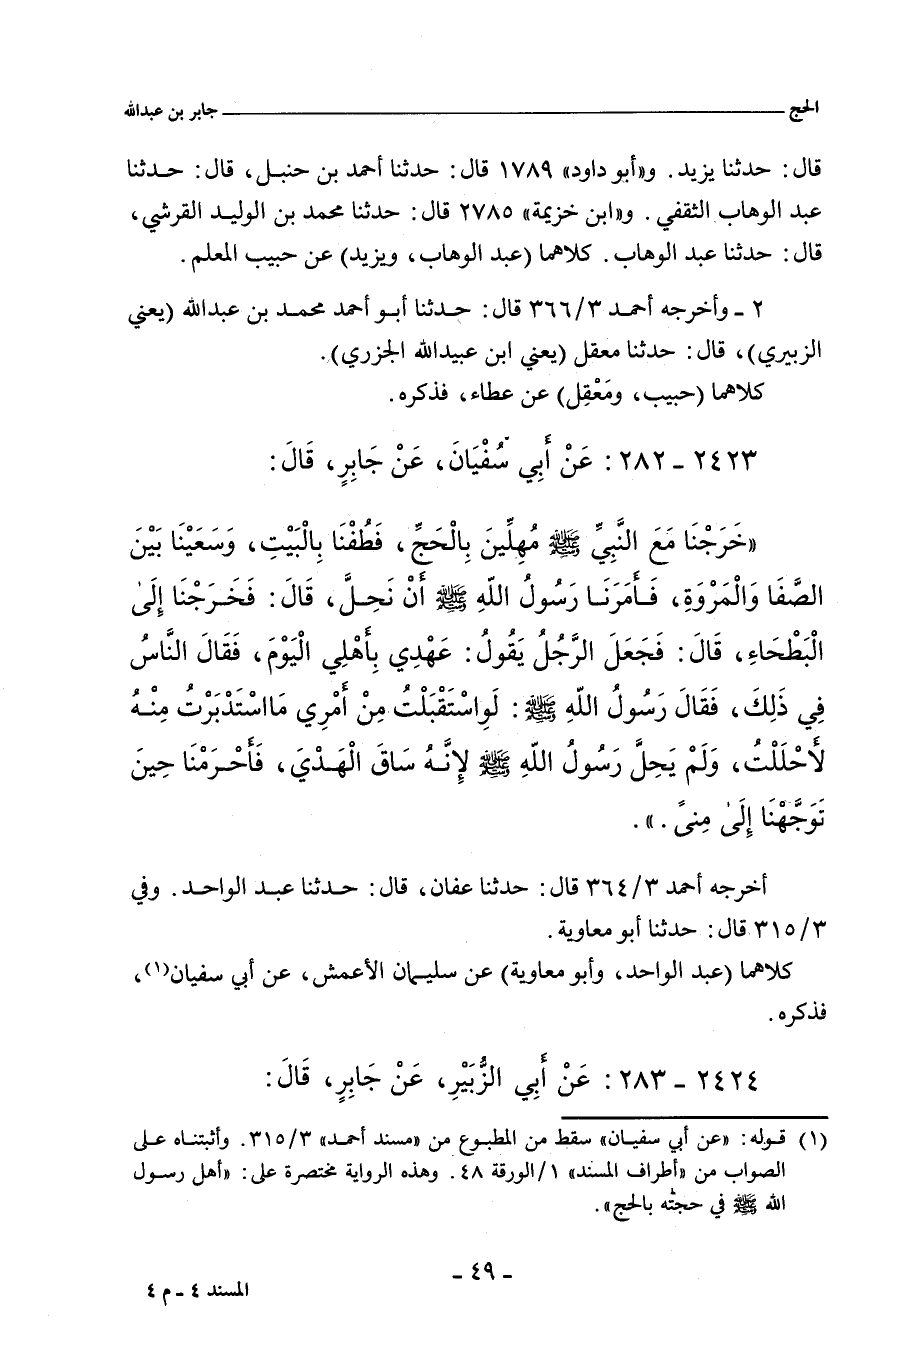 الحج
جابر بن عبدالله
قال: حدثنا يزيد. و«أبو داود» ١٧٨٩ قال: حدثنا أحمد بن حنبل، قال: حدثنا
عبد الوهاب الثقفي. و«ابن خزيمة» ٢٧٨٥ قال: حدثنا محمد بن الوليد القرشي،
قال: حدثنا عبد الوهاب. كلاهما (عبد الوهاب، ويزيد) عن حبيب المعلم.
٢ - وأخرجه أحمد ٣/٣٦٦ قال: حدثنا أبو أحمد محمد بن عبدالله (يعني
الزبيري)، قال: حدثنا معقل (يعني ابن عبيدالله الجزري).
كلاهما (حبيب، ومَعْقِل) عن عطاء، فذكره.
٢٤٢٣ - ٢٨٢: عَنْ أَبِي سُفْيَانَ، عَنْ جَابِرٍ، قَالَ:
«خَرَجْنَا مَعَ النَّبِيِّ ﷺ مُهِلِّينَ بِالْحَجِّ، فَطُفْنَا بِالْبَيْتِ، وَسَعَيْنَا بَيْنَ
الصَّفَا وَالْمَرْوَةِ، فَأَمَرَنَا رَسُولُ اللّهِ ﷺ أَنْ نَحِلَّ، قَالَ: فَخَرَجْنَا إِلَىٰ
الْبَطْحَاءِ، قَالَ: فَجَعَلَ الرَّجُلُ يَقُولُ: عَهْدِي بِأَهْلِي الْيَوْمَ، فَقَالَ النَّاسُ
فِي ذَلِكَ، فَقَالَ رَسُولُ اللّهِ ﷺ: لَوِاسْتَقْبَلْتُ مِنْ أَمْرِي مَااسْتَدْبَرْتُ مِنْهُ
لَأَحْلَلْتُ، وَلَمْ يَحِلَّ رَسُولُ اللّهِ ﷺ لِإنَّهُ سَاقَ الْهَدْيَ، فَأَحْرَمْنَا حِينَ
تَوَجَّهْنَا إِلَىٰ مِنىً.».
أخرجه أحمد ٣/٣٦٤ قال: حدثنا عفان، قال: حدثنا عبد الواحد. وفي
٣/٣١٥ قال: حدثنا أبو معاوية.
كلاهما (عبد الواحد، وأبو معاوية) عن سليمان الأعمش، عن أبي سفيان(١)،
فذكره.
٢٤٢٤ - ٢٨٣: عَنْ أَبِي الزُّبَيْرِ، عَنْ جَابِرٍ، قَالَ:
(١) قوله: «عن أبي سفيان» سقط من المطبوع من «مسند أحمد» ٣/٣١٥. وأثبتناه على
الصواب من «أطراف المسند» ١/الورقة ٤٨. وهذه الرواية مختصرة على: «أهل رسول
الله ﷺ في حجته بالحج».
- ٤٩ -
المسند ٤ - م ٤